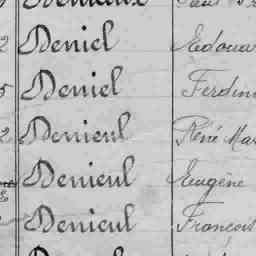 2 Deniel Edouar
5 Deniel Ferdin
2 Denieul René Mar
Denieul Eugène
Denieul François